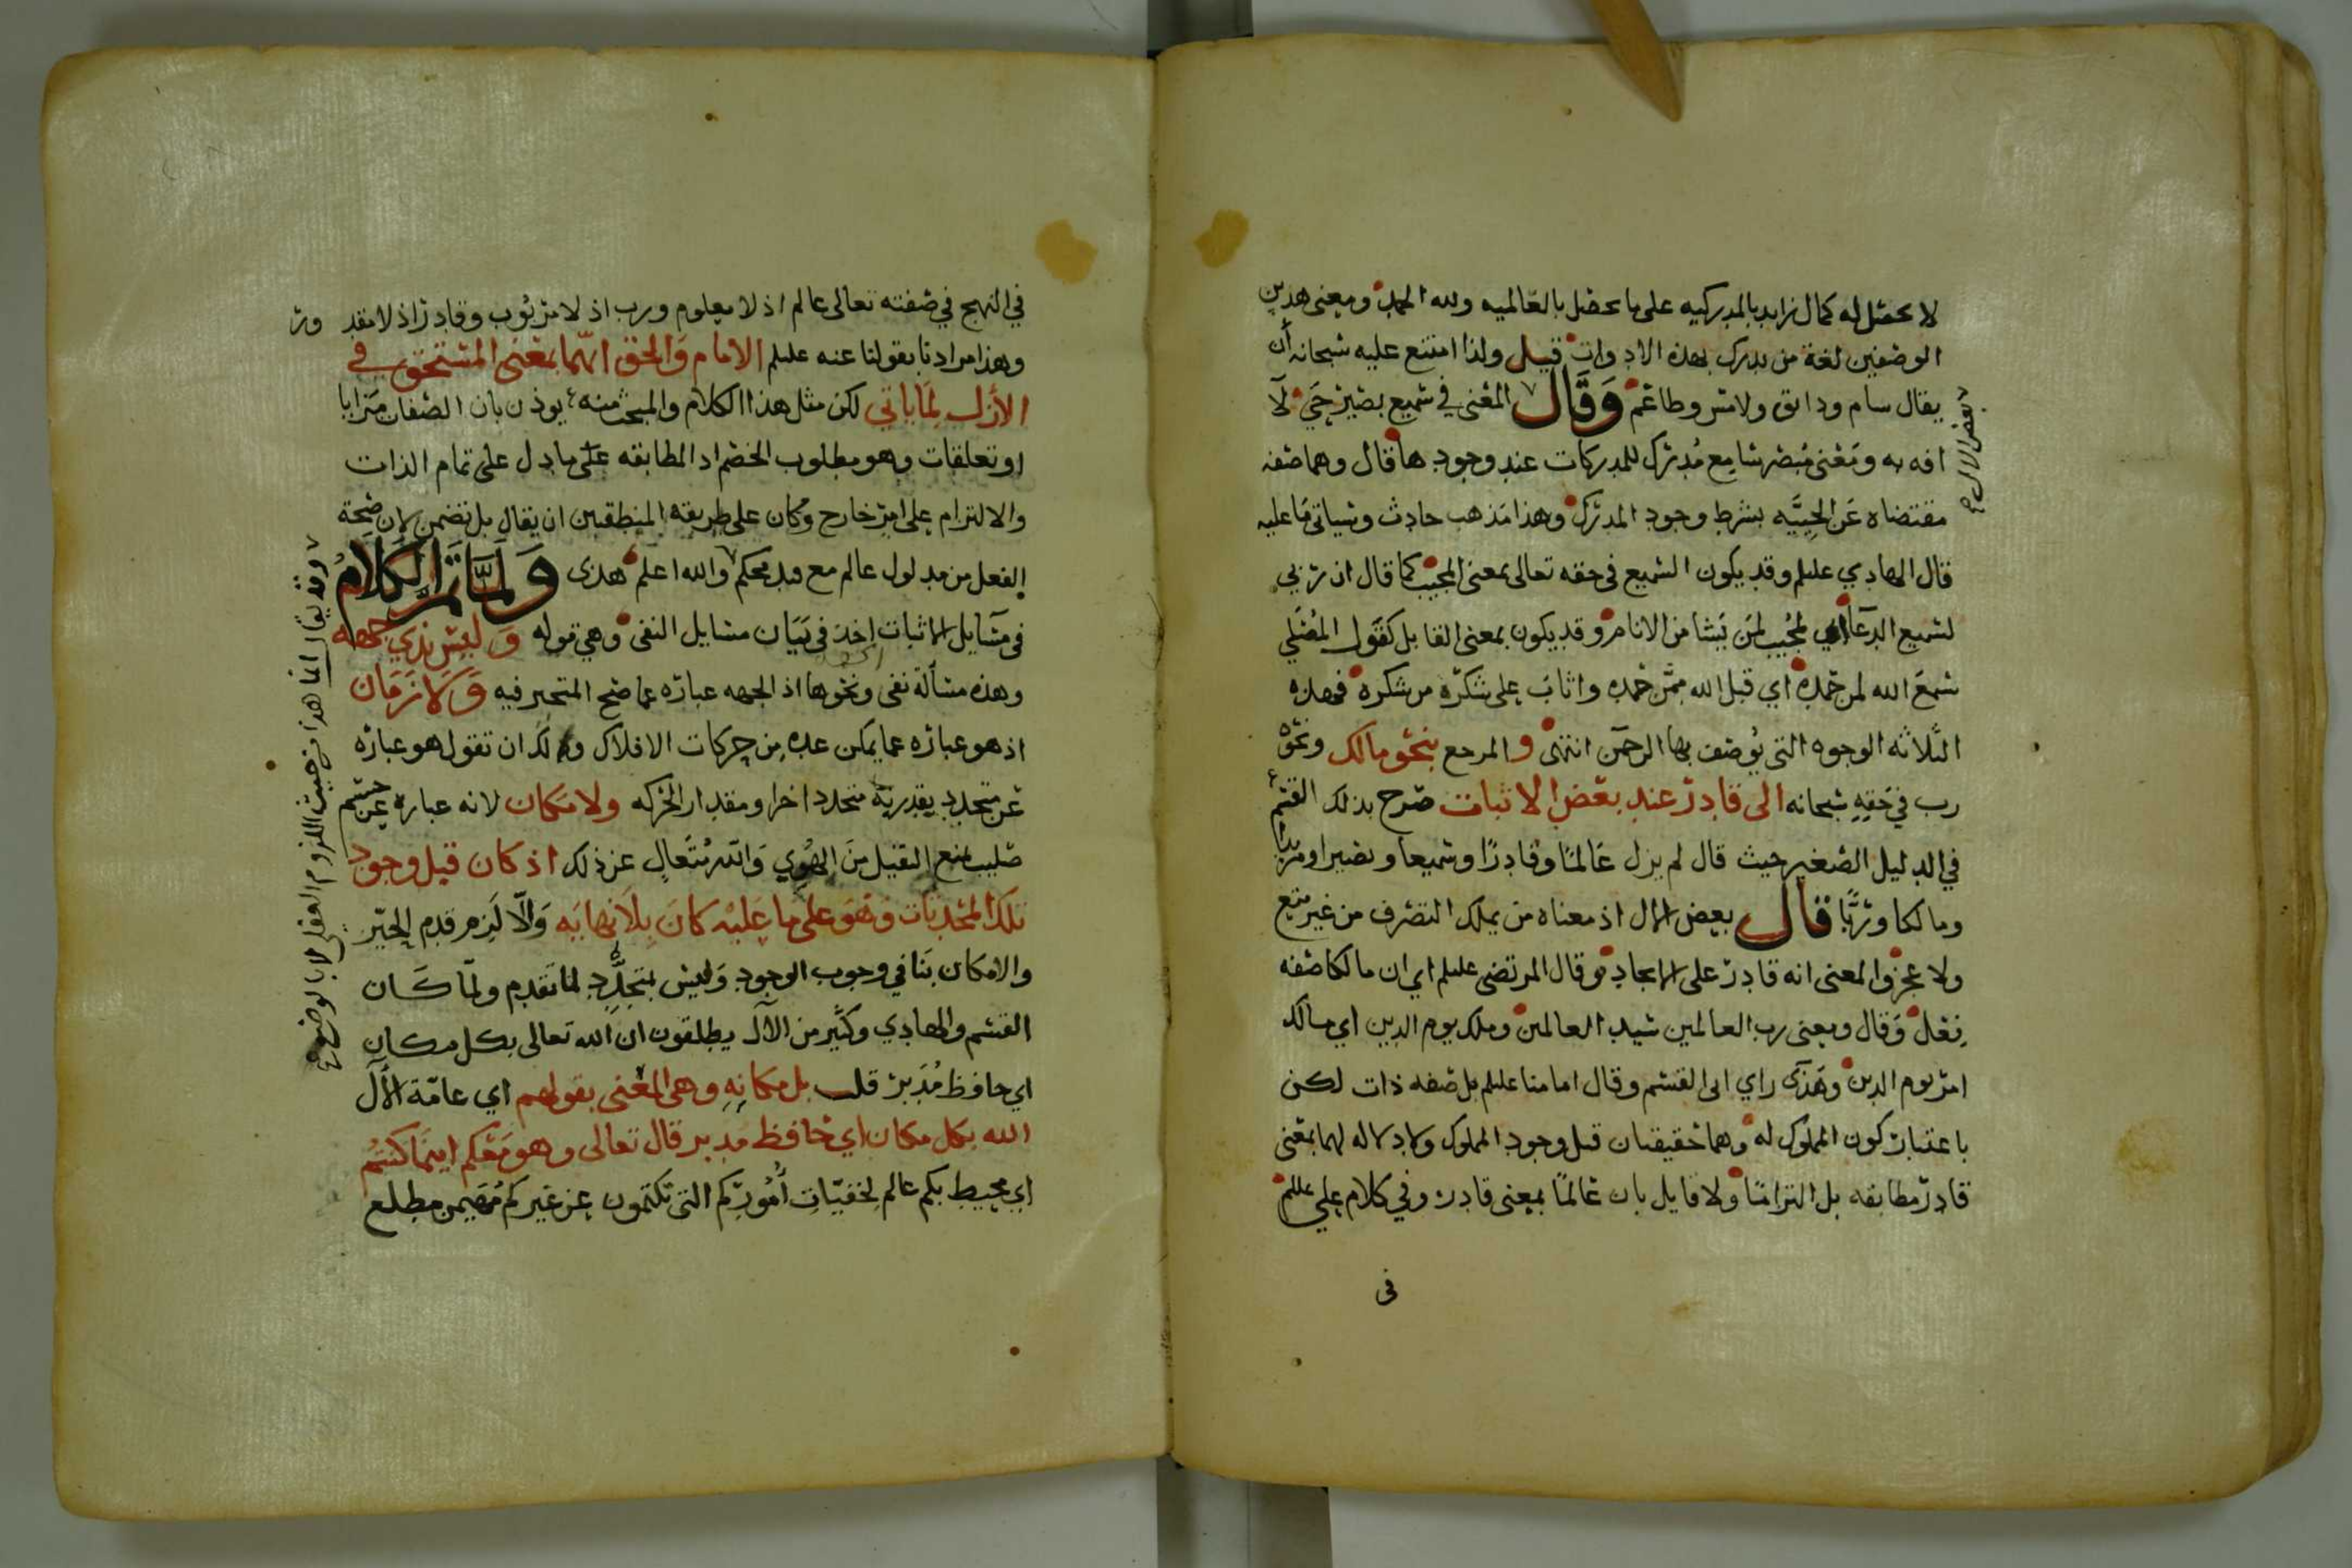 لا يحصل له كمال زايد بالمدركيه على ما يحصل بالعالميه ولله الحمد ومعنى هذين
الوصفين لغة من يدرك بهذه الادوات قيل ولذا امتنع عليه سبحانه أن
يقال سام وذائق ولامس وطاعم وقال المعنى في سميع بصير حي لا
افه به ومعنى مبصر سامع مدرك للمدركات عند وجودها قال وهما صفه
مقتضاه عن الحييّه بشرط وجود المدرك وهذا مذهب حادث وسياتي ما عليه
قال الهادي عليلم وقد يكون السميع في حقه تعالى بمعنى المجيب كما قال ان ربي
لسميع الدعآ اي لمجيب لمن يشا من الانام وقد يكون بمعنى القابل كقول المصلي
سمع الله لمن حمده اي قبل الله ممن حمده واثاب على شكره من شكره فهذه
الثلاثه الوجوه التي يوصف بها الرحمن انتهى و المرجع بنحو مالك ونحو
رب في حقه سبحانه الى قادر عند بعض الاثبات صرح بذلك القسم
في الدليل الصغير حيث قال لم يزل عالمًا وقادرًا وسميعا وبصيرا ومريدا
ومالكا وربًّا قال بعض الال اذ معناه من يملك التصرف من غير منع
ولا عجز والمعنى انه قادر على الايجاد وقال المرتضى عليلم اي ان مالكا صفه
فعل وقال ومعنى رب العالمين سيد العالمين وملك يوم الدين اي مالك
امر يوم الدين وهذى راي ابي القسم وقال امامنا عليلم بل صفه ذات لكن
باعتبار كون المملوك له وهما حقيقتان قبل وجود المملوك ولا دلاله لهما بمعنى
قادر مطابقه بل التزامًا ولا قايل بان عالمًا بمعنى قادر وفي كلام علي عليلم
في
بعض الال صح
في النهج في صفته تعالى عالم اذ لا معلوم ورب اذ لا مربوب وقادر اذ لا مقدور
وهذا مرادنا بقولنا عنه عليلم الامام والحق انهما بمعنى المستحق في
الأزل لما ياتي لكن مثل هذا الكلام والمبحث منه يوذن بان الصفات مزايا
او تعلقات وهو مطلوب الخصم اذ المطابقه على ما دل على تمام الذات
والالتزام على امر خارج وكان على طريقه المنطقيين ان يقال بل تضمن لان صحة
الفعل من مدلول عالم مع قيد محكم والله اعلم هذى ولما تم الكلام
في مسايل الاثبات اخذ في بيان مسايل النفي وهي قوله وليس بذي جهه
وهذه مسألة نفي ونحوها اذ الجهه عباره عما صح المتحيز فيه ولا زمان
اذ هو عباره عما يمكن عده من حركات الافلاك ولك ان تقول هو عباره
عن متجدد يقدر به متجدد اخر او مقدار الحركه ولا مكان لانه عباره عن جسم
صليب يمنع الثقيل من الهوي والله متعال عن ذلك اذ كان قبل وجود
تلك المحدثات وهو على ما عليه كان بلا نهايه والّا لزم قدم الحيّز
والامكان ينافي وجوب الوجود وليس بمتجدد لما تقدم ولما كان
القسم والهادي وكثير من الآل يطلقون ان الله تعالى بكل مكان
اي حافظ مدبر قلب بل مكانه وهي المعنى بقولهم اي عامّة الآل
الله بكل مكان اي حافظ مدبر قال تعالى وهو معكم اينما كنتم
اي محيط بكم عالم لخفيّات أموركم التي تكتمون عن غيركم مهيمن مطلع
وقد يقال انما هذا من حيث اللزوم العقلي لا بالوضع صح